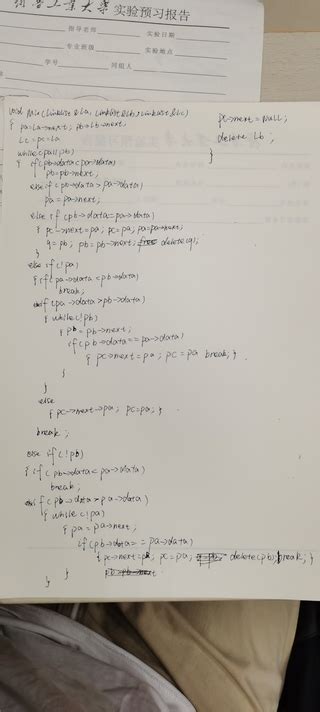 工业大学 实验预习报告
指导老师 实验日期
专业班级 实验地点
学号 同组人
void Mix(Linklist &La, Linklist &Lb, Linklist &Lc)
{ pa=La->next; pb=Lb->next;
Lc=pc=La
while(pa||pb)
{ if(pb->data<pa->data)
pb=pb->next;
else if(pb->data>pa->data)
pa=pa->next;
else if(pb->data=pa->data)
{ pc->next=pa; pc=pa; pa=pa->next;
q=pb; pb=pb->next; delete(q);
}
else if(!pa)
{ if(pa->data<pb->data)
break;
else if(pa->data>pb->data)
{ while(!pb)
{ pb=pb->next;
if(pb->data==pa->data)
{ pc->next=pa; pc=pa break; }
}
}
else
{ pc->next->pa; pc=pa; }
break;
else if(!pb)
{ if(pb->data<pa->data)
break;
else if(pb->data>pa->data)
{ while(!pa)
{ pa=pa->next;
if(pb->data==pa->data)
{ pc->next=pa; pc=pa; delete(pb); break; }
}
}
pc->next=Null;
delete Lb;
}